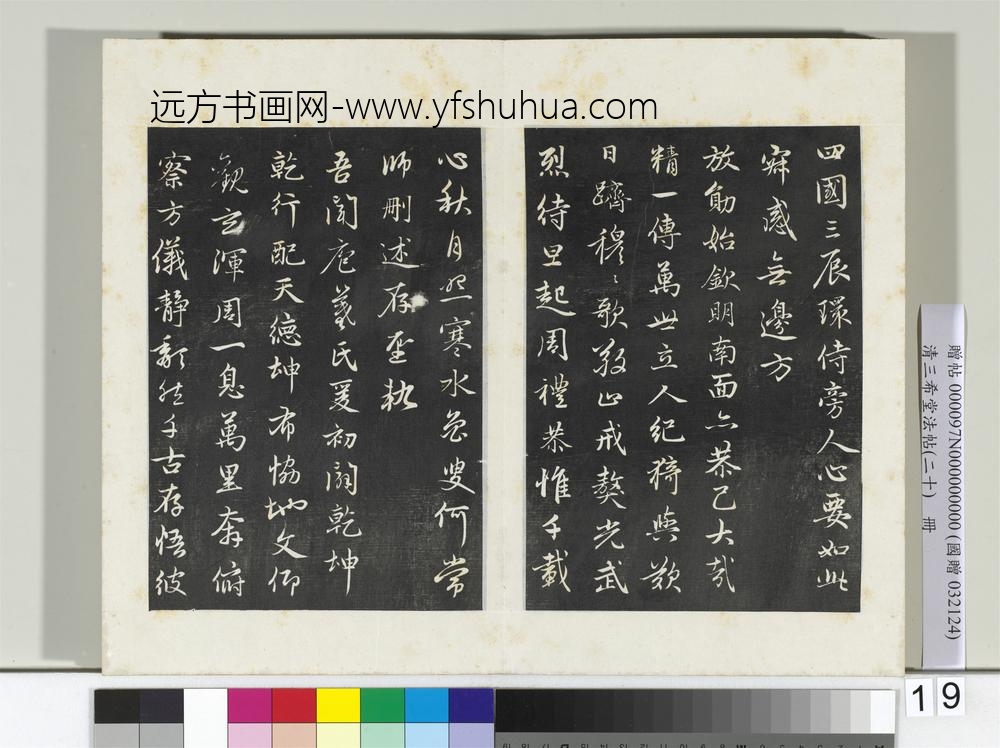 远方书画网-www.yfshuhua.com
四國三辰環侍旁人心要如此
寂感無邊方
放勛始欽明南面亦恭己大哉
精一傳萬世立人紀猗與歎
日躋穆〻歌敬止戒獒光武
烈待旦起周禮恭惟千載
心秋月照寒水魯叟何常
師刪述存聖軌
吾聞庖羲氏爰初闢乾坤
乾行配天德坤布協地文仰
觀玄渾周一息萬里奔俯
察方儀靜頹然千古存悟彼
贈帖 000097N000000000 (國贈 032124)
清三希堂法帖(二十) 冊
19